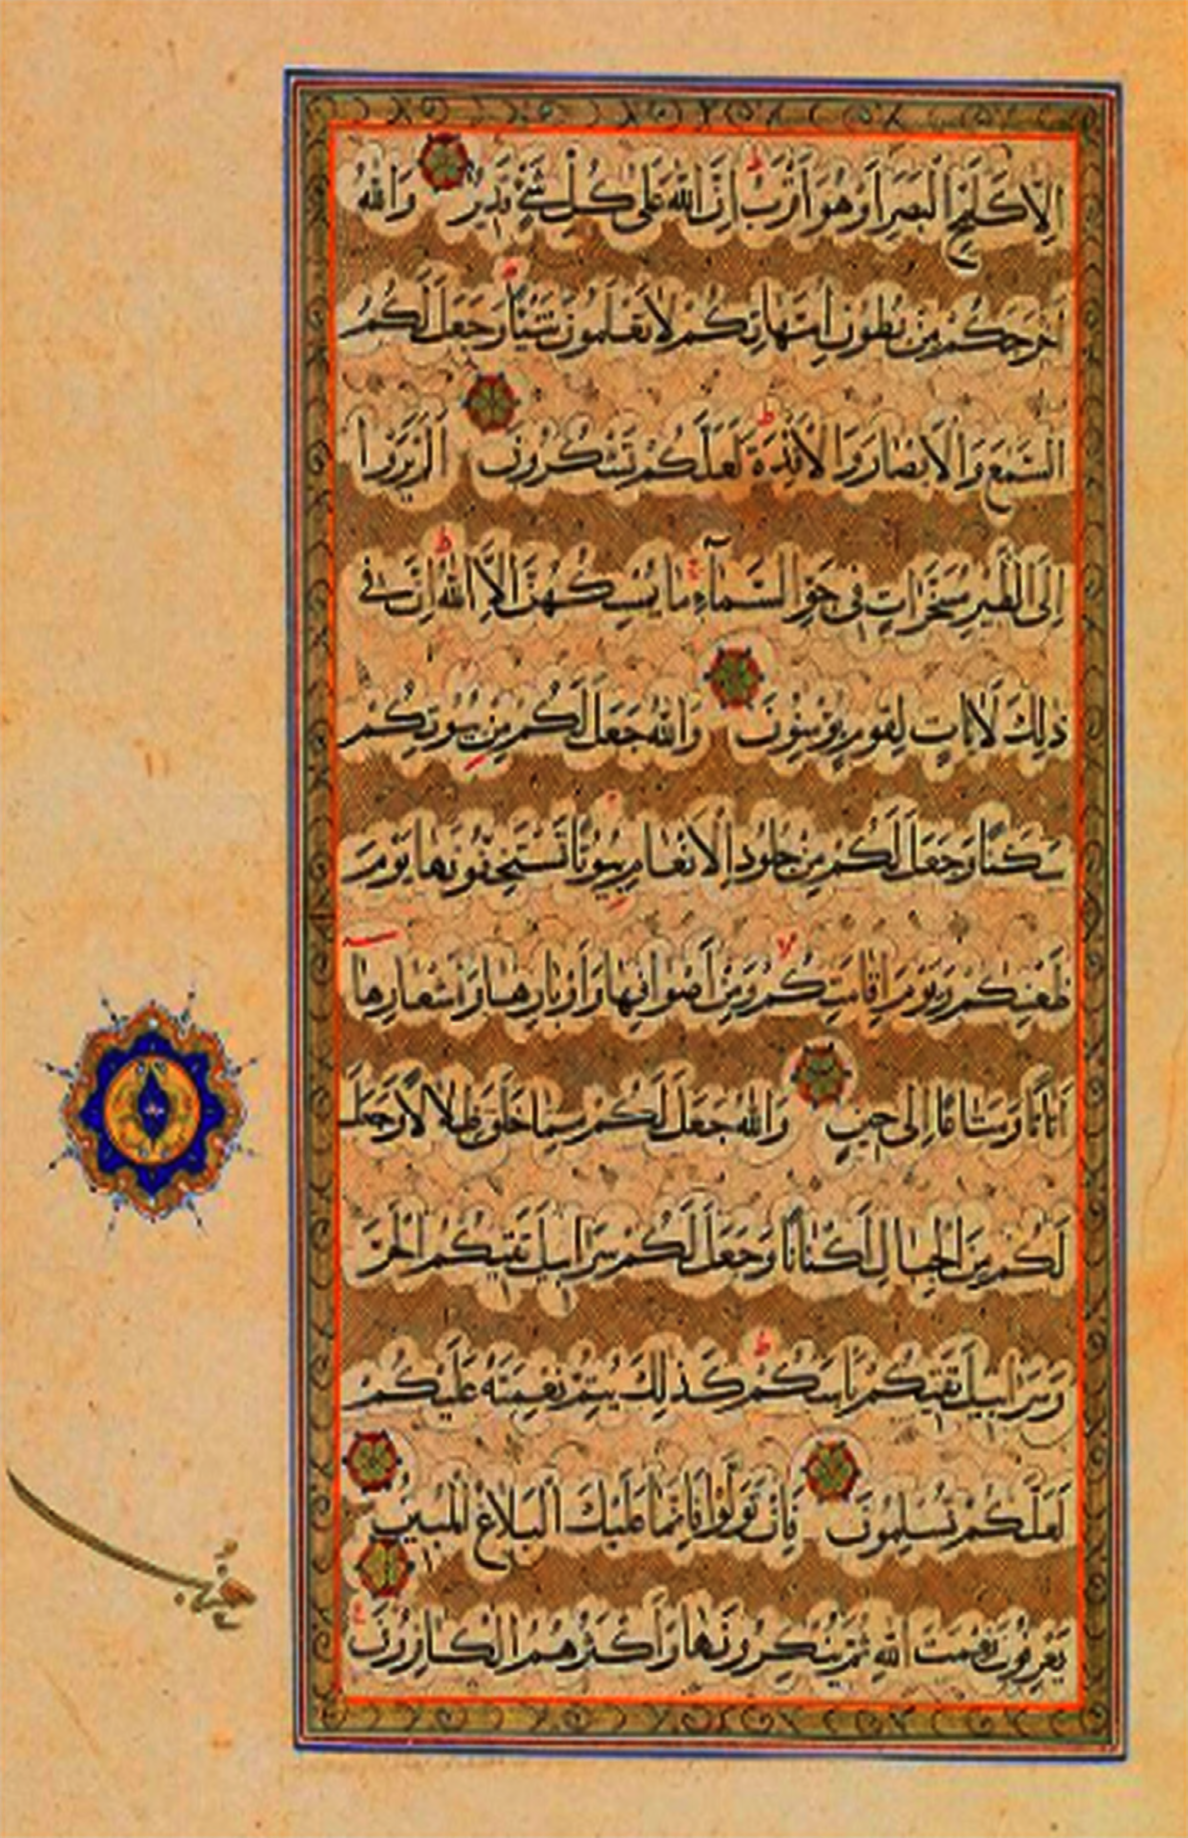 اِلَّا كَلَمْحِ الْبَصَرِ اَوْ هُوَ اَقْرَبُ اِنَّ اللّٰهَ عَلٰى كُلِّ شَيْءٍ قَدِيرٌ وَاللّٰهُ
اَخْرَجَكُمْ مِنْ بُطُونِ اُمَّهَاتِكُمْ لَا تَعْلَمُونَ شَيْئًا وَجَعَلَ لَكُمُ
السَّمْعَ وَالْاَبْصَارَ وَالْاَفْئِدَةَ لَعَلَّكُمْ تَشْكُرُونَ اَلَمْ يَرَوْا
اِلَى الطَّيْرِ مُسَخَّرَاتٍ فِى جَوِّ السَّمَآءِ مَا يُمْسِكُهُنَّ اِلَّا اللّٰهُ اِنَّ فِى
ذٰلِكَ لَاٰيَاتٍ لِقَوْمٍ يُؤْمِنُونَ وَاللّٰهُ جَعَلَ لَكُمْ مِنْ بُيُوتِكُمْ
سَكَنًا وَجَعَلَ لَكُمْ مِنْ جُلُودِ الْاَنْعَامِ بُيُوتًا تَسْتَخِفُّونَهَا يَوْمَ
ظَعْنِكُمْ وَيَوْمَ اِقَامَتِكُمْ وَمِنْ اَصْوَافِهَا وَاَوْبَارِهَا وَاَشْعَارِهَا
اَثَاثًا وَمَتَاعًا اِلٰى حِينٍ وَاللّٰهُ جَعَلَ لَكُمْ مِمَّا خَلَقَ ظِلَالًا وَجَعَلَ
لَكُمْ مِنَ الْجِبَالِ اَكْنَانًا وَجَعَلَ لَكُمْ سَرَابِيلَ تَقِيكُمُ الْحَرَّ
وَسَرَابِيلَ تَقِيكُمْ بَاْسَكُمْ كَذٰلِكَ يُتِمُّ نِعْمَتَهُ عَلَيْكُمْ
لَعَلَّكُمْ تُسْلِمُونَ فَاِنْ تَوَلَّوْا فَاِنَّمَا عَلَيْكَ الْبَلَاغُ الْمُبِينُ
يَعْرِفُونَ نِعْمَتَ اللّٰهِ ثُمَّ يُنْكِرُونَهَا وَاَكْثَرُهُمُ الْكَافِرُونَ